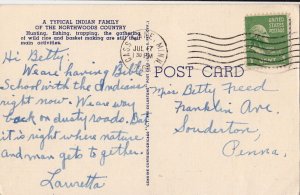 A TYPICAL INDIAN FAMILY
OF THE NORTHWOODS COUNTRY
Hunting, fishing, trapping, the gathering
of wild rice and basket making are still their
main activities.
Hi Betty,
We are having Bible
School with the Indians
right now. We are way
back on dusty roads. But
it is right where nature
and man gets to gether.
Lauretta
MINN.
JUL 17
PM
POST CARD
Miss Betty Freed
Franklin Ave.
Souderton
Penna.